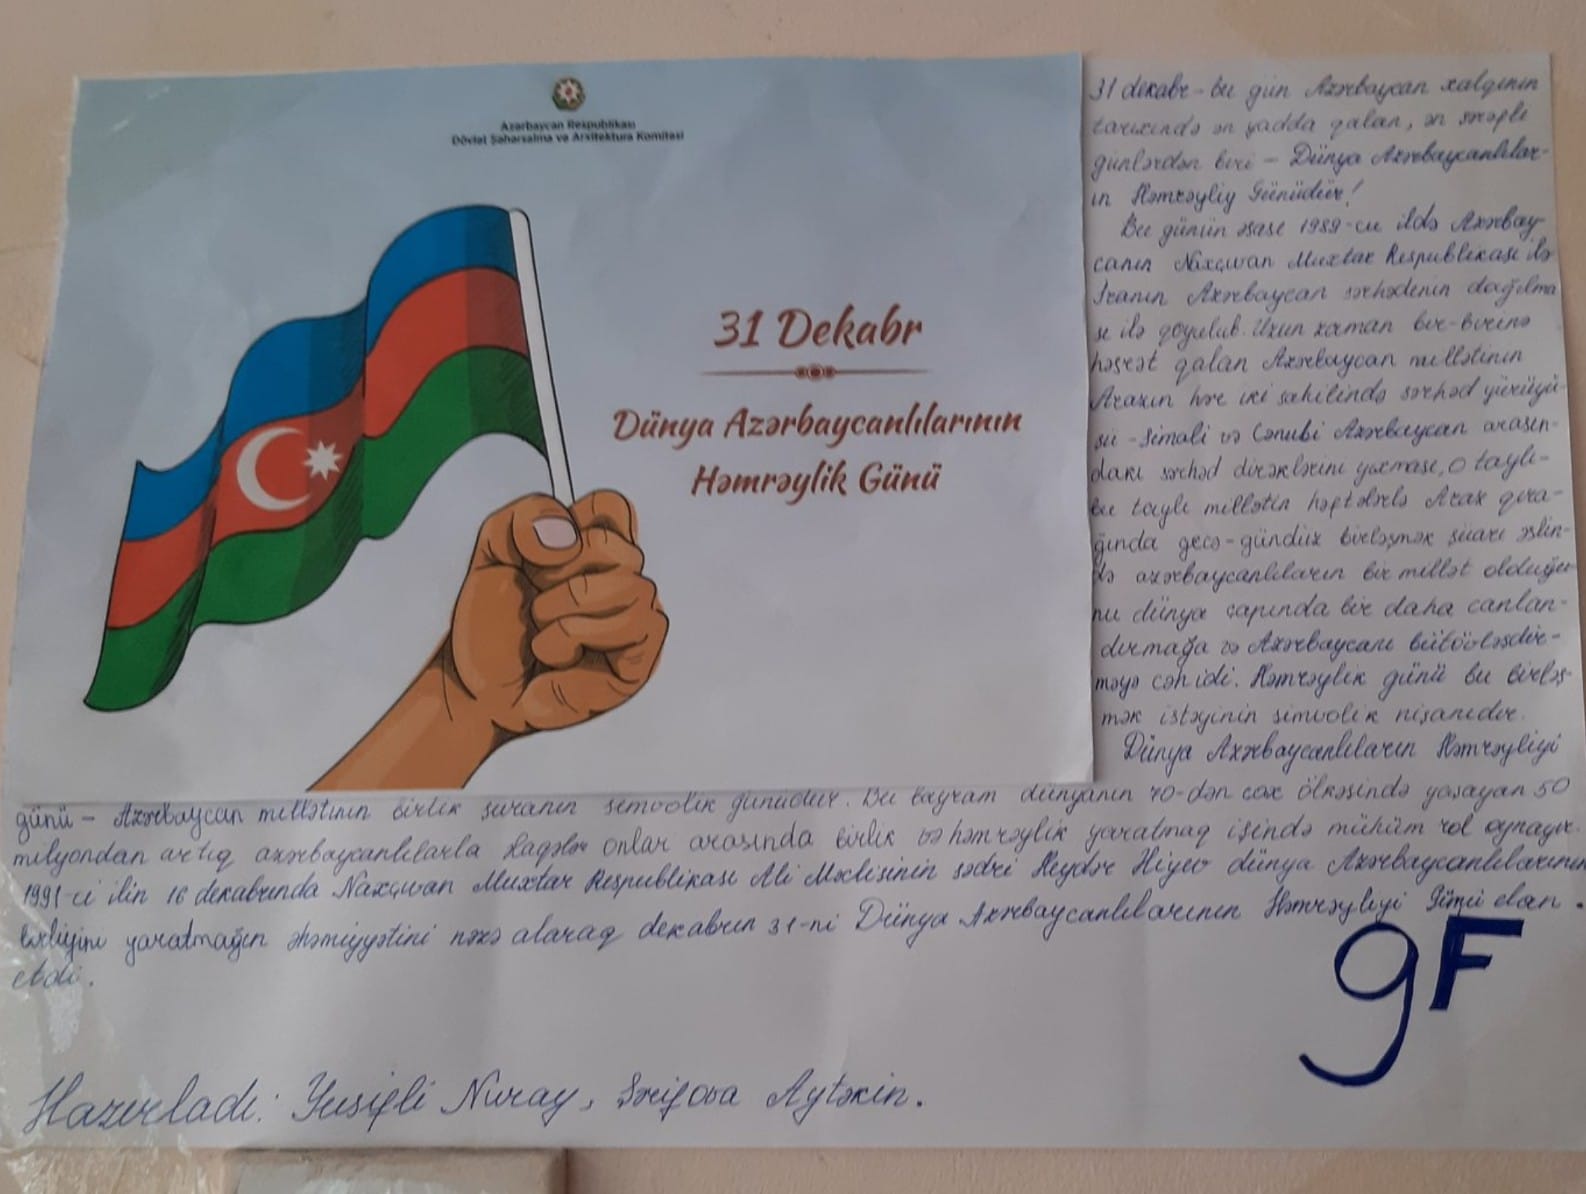 Azərbaycan Respublikası
Dövlət Şəhərsalma və Arxitektura Komitəsi
31 Dekabr
Dünya Azərbaycanlılarının
Həmrəylik Günü
31 dekabr - bu gün Azərbaycan xalqının
tarixində ən yadda qalan, ən şərəfli
günlərdən biri - Dünya Azərbaycanlılar-
ın Həmrəyliy Günüdür!
Bu günün əsası 1989-cu ildə Azərbay-
canın Naxçıvan Muxtar Respublikası ilə
İranın Azərbaycan sərhədinin dağılma
sı ilə qoyulub. Uzun zaman bir-birinə
həsrət qalan Azərbaycan millətinin
Arazın hər iki sahilində sərhəd yürüyü-
şü - Şimali və Cənubi Azərbaycan arasın-
dakı sərhəd dirəklərini yıxması, o taylı-
bu taylı millətin həftələrlə Araz qıra-
ğında gecə-gündüz birləşmək şüarı əslin-
də azərbaycanlıların bir millət olduğu-
nu dünya çapında bir daha canlan-
dırmağa və Azərbaycanı bütövləşdir-
məyə cəhidi. Həmrəylik günü bu birləş-
mək istəyinin simvolik nişanıdır.
Dünya Azərbaycanlıların Həmrəyliyi
günü - Azərbaycan millətinin birlik şüarının simvolik günüdür. Bu bayram dünyanın 70-dən çox ölkəsində yaşayan 50
milyondan artıq azərbaycanlılarla onlar arasında birlik və həmrəylik yaratmaq işində mühüm rol oynayır.
1991-ci ilin 16 dekabrında Naxçıvan Muxtar Respublikası Ali Məclisinin sədri Heydər Əliyev dünya Azərbaycanlılarının
birliyini yaratmağın əhəmiyyətini nəzə alaraq dekabrın 31-ni Dünya Azərbaycanlılarının Həmrəyliyi Günü elan
etdi.
9F
Hazırladı: Yusifli Nuray, Şərifova Aytəkin.